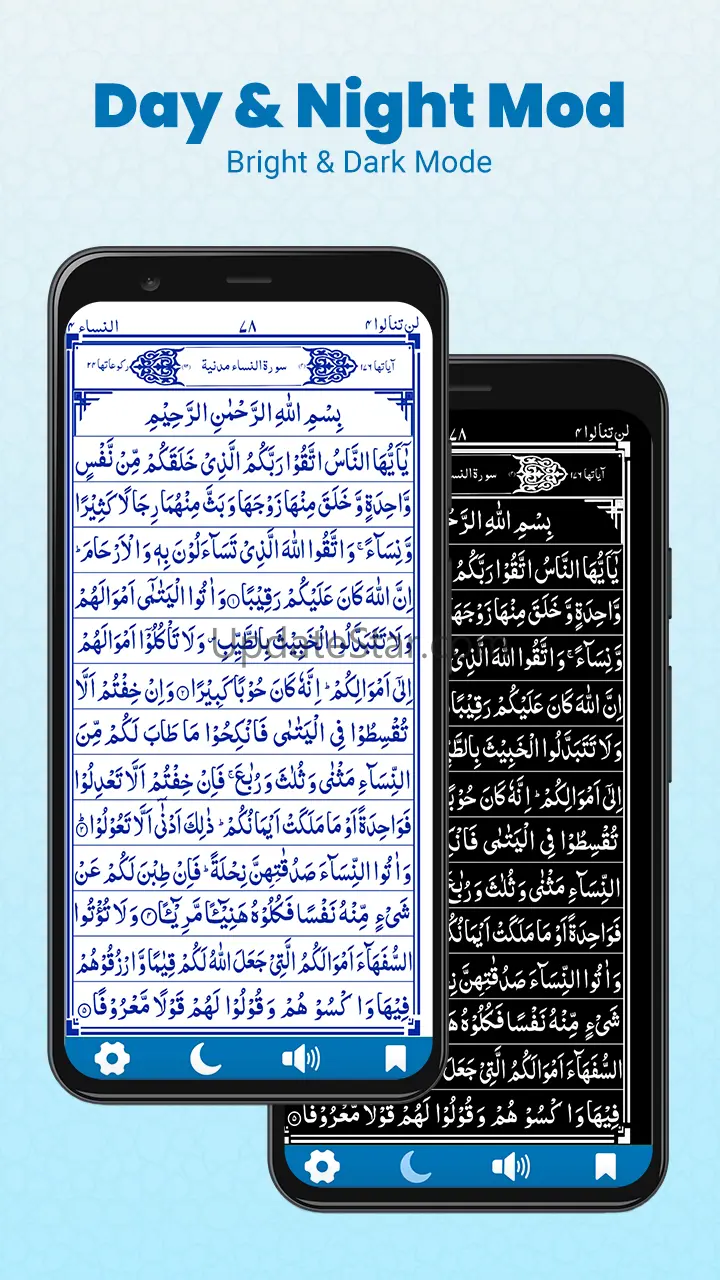 Day & Night Mod
Bright & Dark Mode
لن تنالوا ۴ ۷۸ النساء ۴
آیاتها ۱۷۶ سورة النساء مدنیة رکوعاتها ۲۴
بِسْمِ اللّٰهِ الرَّحْمٰنِ الرَّحِیْمِ
یٰۤاَیُّهَا النَّاسُ اتَّقُوْا رَبَّكُمُ الَّذِیْ خَلَقَكُمْ مِّنْ نَّفْسٍ
وَّاحِدَةٍ وَّ خَلَقَ مِنْهَا زَوْجَهَا وَ بَثَّ مِنْهُمَا رِجَالًا كَثِیْرًا
وَّ نِسَآءً ۚ وَ اتَّقُوا اللّٰهَ الَّذِیْ تَسَآءَلُوْنَ بِهٖ وَ الْاَرْحَامَ ؕ
اِنَّ اللّٰهَ كَانَ عَلَیْكُمْ رَقِیْبًا ۱ وَ اٰتُوا الْیَتٰمٰۤی اَمْوَالَهُمْ
وَ لَا تَتَبَدَّلُوا الْخَبِیْثَ بِالطَّیِّبِ ۪ وَ لَا تَاْكُلُوْۤا اَمْوَالَهُمْ
UpdateStar.com
اِلٰۤی اَمْوَالِكُمْ ؕ اِنَّهٗ كَانَ حُوْبًا كَبِیْرًا ۲ وَ اِنْ خِفْتُمْ اَلَّا
تُقْسِطُوْا فِی الْیَتٰمٰی فَانْكِحُوْا مَا طَابَ لَكُمْ مِّنَ
النِّسَآءِ مَثْنٰی وَ ثُلٰثَ وَ رُبٰعَ ۚ فَاِنْ خِفْتُمْ اَلَّا تَعْدِلُوْا
فَوَاحِدَةً اَوْ مَا مَلَكَتْ اَیْمَانُكُمْ ؕ ذٰلِكَ اَدْنٰۤی اَلَّا تَعُوْلُوْا ۳
وَ اٰتُوا النِّسَآءَ صَدُقٰتِهِنَّ نِحْلَةً ؕ فَاِنْ طِبْنَ لَكُمْ عَنْ
شَیْءٍ مِّنْهُ نَفْسًا فَكُلُوْهُ هَنِیْٓـًٔا مَّرِیْٓـًٔا ۴ وَ لَا تُؤْتُوا
السُّفَهَآءَ اَمْوَالَكُمُ الَّتِیْ جَعَلَ اللّٰهُ لَكُمْ قِیٰمًا وَّ ارْزُقُوْهُمْ
فِیْهَا وَ اكْسُوْهُمْ وَ قُوْلُوْا لَهُمْ قَوْلًا مَّعْرُوْفًا ۵
لن تنالوا ۴ ۷۸
آیاتها ۱۷۶ سورة النس
بِسْمِ اللّٰهِ الرَّحْ
یٰۤاَیُّهَا النَّاسُ اتَّقُوْا رَبَّكُمُ
وَّاحِدَةٍ وَّ خَلَقَ مِنْهَا زَوْجَهَا
وَّ نِسَآءً ۚ وَ اتَّقُوا اللّٰهَ الَّذِیْ
اِنَّ اللّٰهَ كَانَ عَلَیْكُمْ رَقِیْبًا
وَ لَا تَتَبَدَّلُوا الْخَبِیْثَ بِالطَّ
اِلٰۤی اَمْوَالِكُمْ ؕ اِنَّهٗ كَانَ حُوْبً
تُقْسِطُوْا فِی الْیَتٰمٰی فَانْكِ
النِّسَآءِ مَثْنٰی وَ ثُلٰثَ وَ رُبٰعَ
فَوَاحِدَةً اَوْ مَا مَلَكَتْ اَیْمَانُكُ
وَ اٰتُوا النِّسَآءَ صَدُقٰتِهِنَّ نِ
شَیْءٍ مِّنْهُ نَفْسًا فَكُلُوْهُ هَ
السُّفَهَآءَ اَمْوَالَكُمُ الَّتِیْ جَعَلَ
فِیْهَا وَ اكْسُوْهُمْ وَ قُوْلُوْا لَهُمْ قَوْلًا مَّعْرُوْفًا ۵